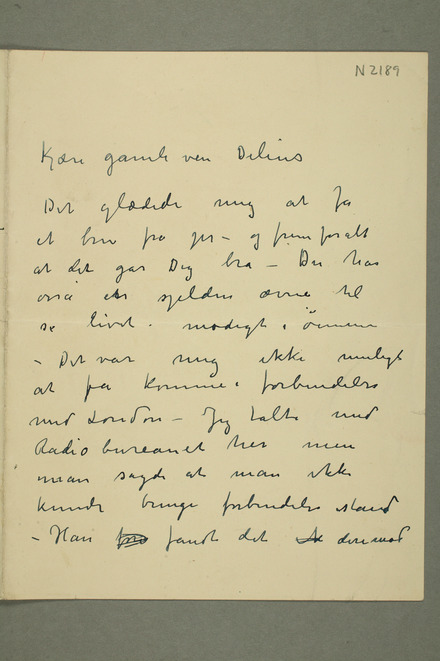 N 2189
Kjære gamle ven Delius
Det glædede mig at få
et brev fra jer – og fremforalt
at det går Dig bra – Du har
også en sjelden ævne til
se livet modigt i öinene
– Det var mig ikke muligt
at få komme i forbindelse
med London – Jeg talte med
Radiobureauet her men
man sagde at man ikke
kunde bringe forbindelse istand
– Han fandt det derimod